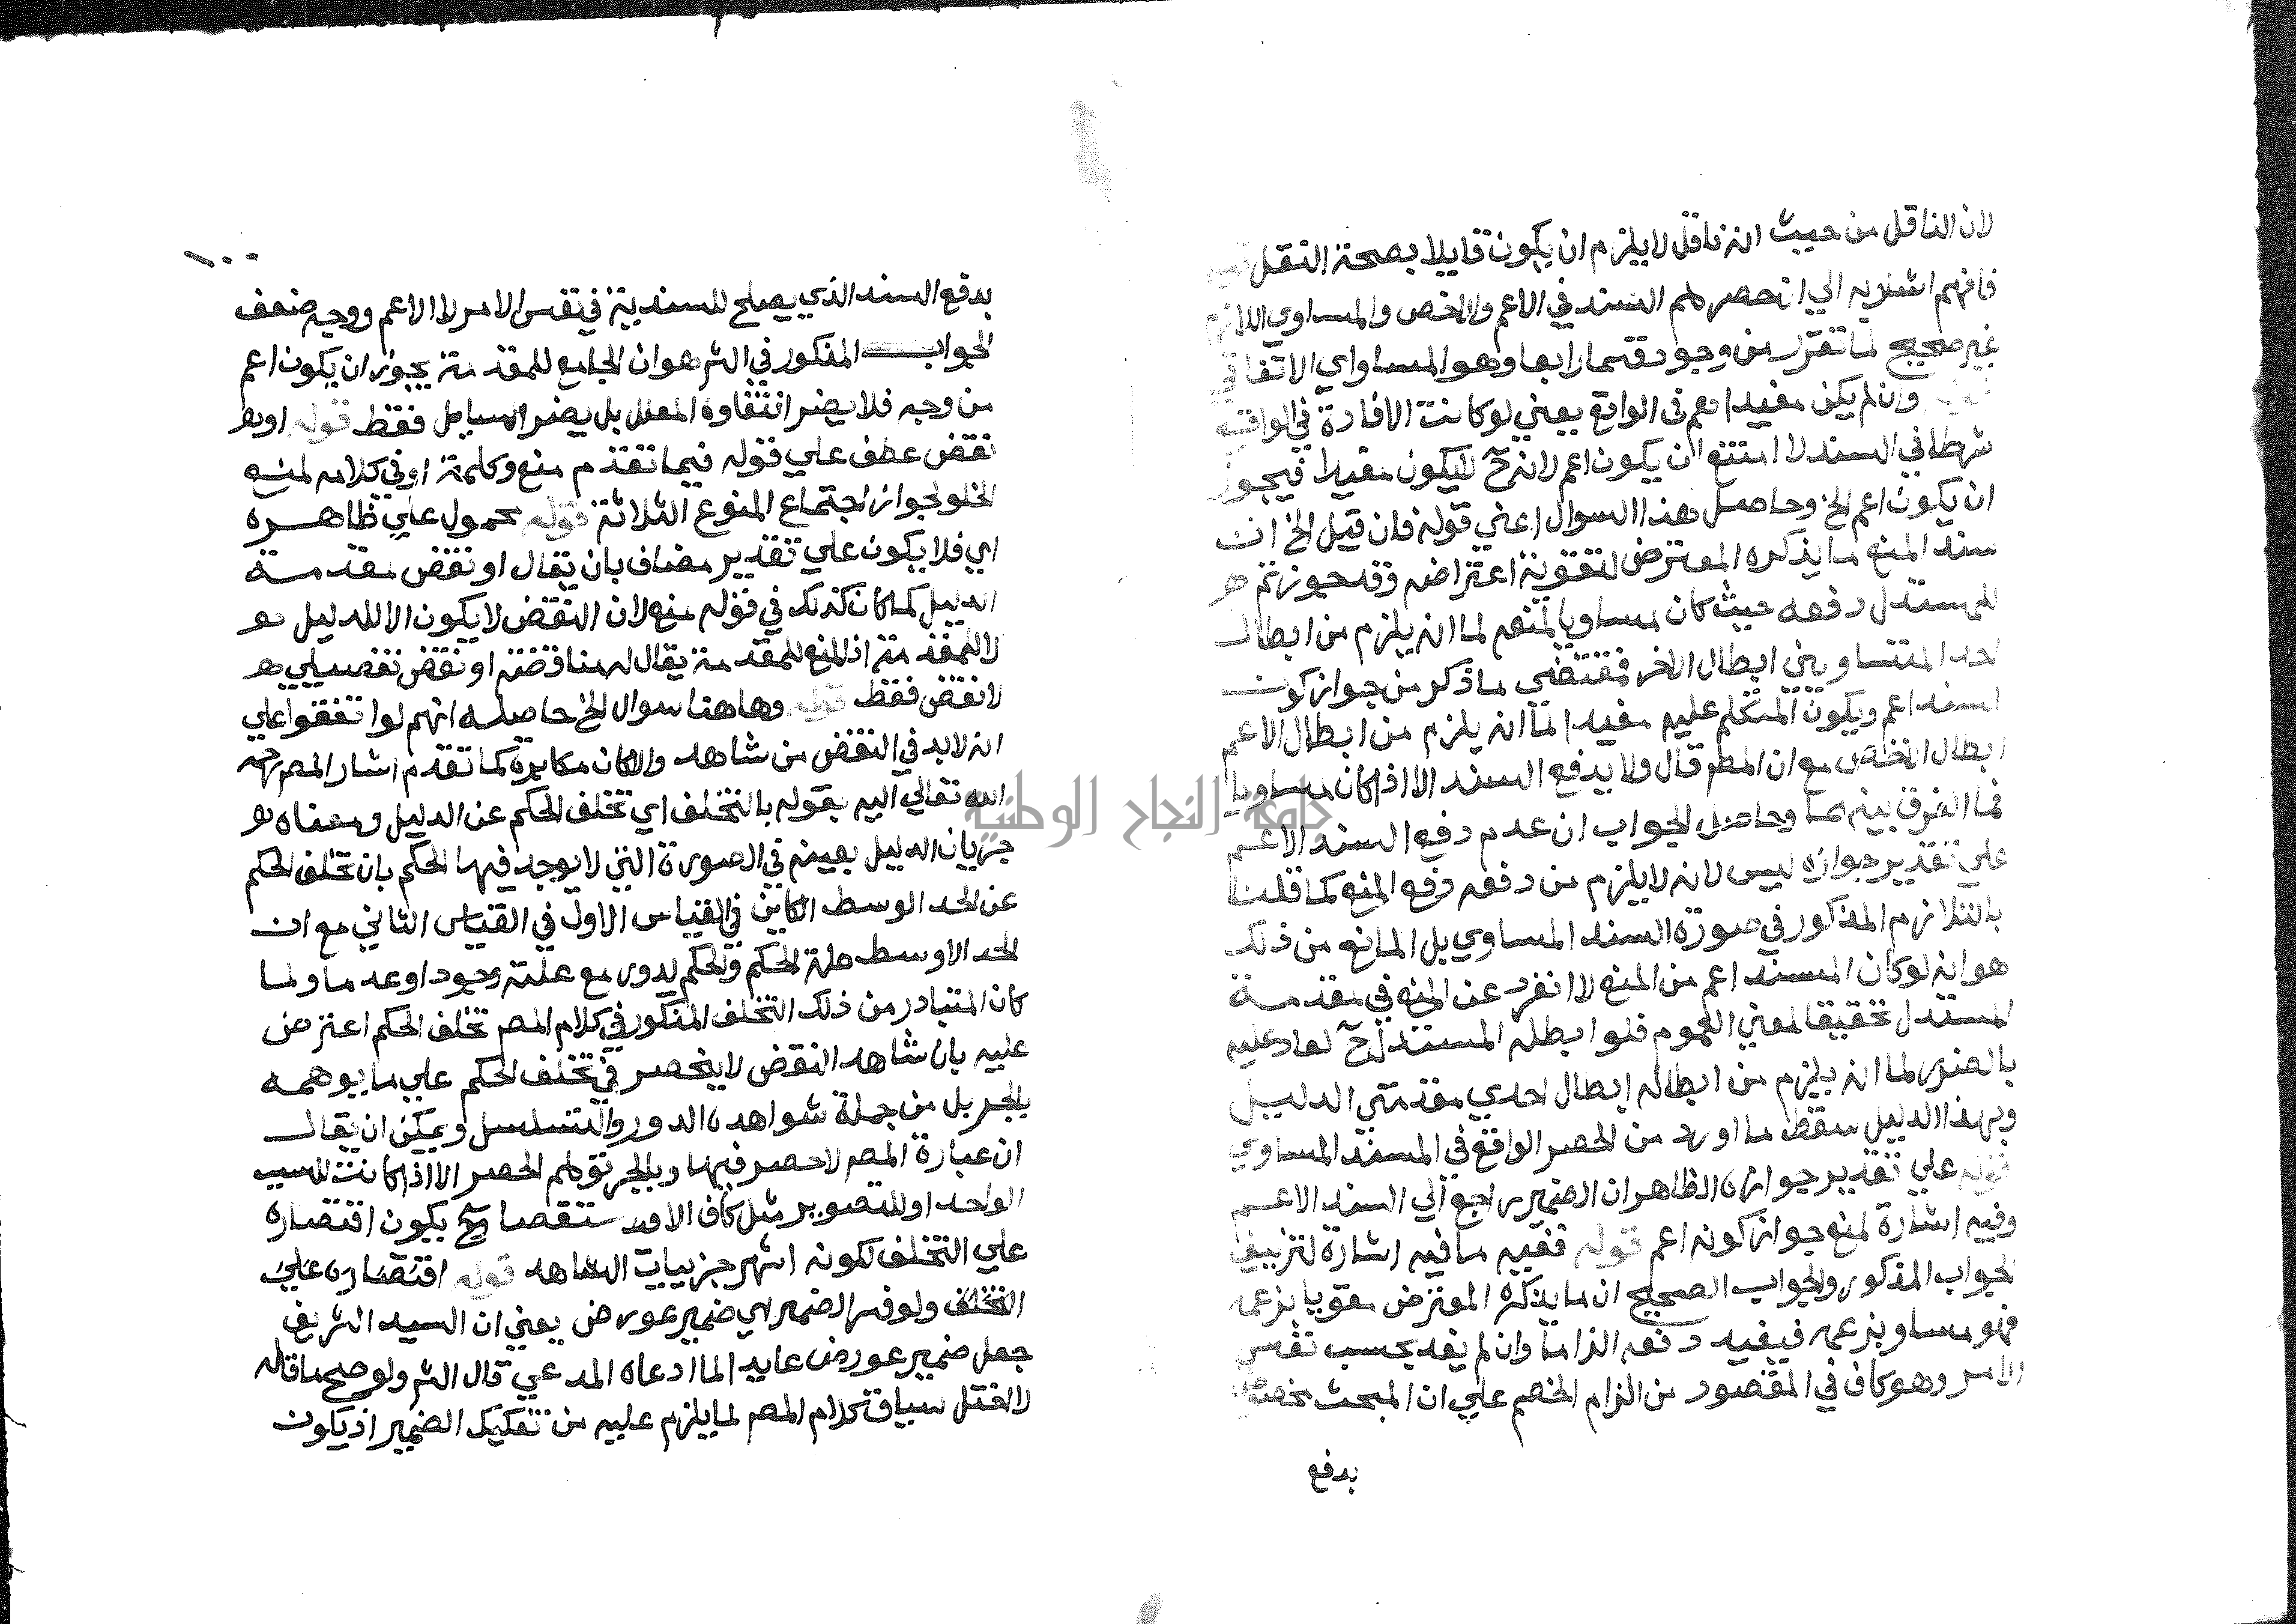 لان الناقل من حيث انه ناقل لا يلزم ان يكون قايلا بصحة النقل
فافهم اشار به الي ان حصرهم السند في الاعم والاخص والمساوي اللازم
غير صحيح لما تقرر من وجود قسم رابعا وهو المساواي الاتفاقي
وان لم يكن مفيدا معه في الواقع يعني لو كانت الافادة في الواقع
شرطا في السند لا امتنع ان يكون اعم لانه ح لا يكون مفيدا فيجوز
ان يكون اعم الخ وحاصل هذا السوال اعني قوله فان قيل الخ ان
سند المنع ما يذكره المعترض لتقوية اعتراضه وقد جوزتم
للمستدل دفعه حيث كان مساويا لمنعه لما انه يلزم من ابطال
احد المتساويين ابطال الاخر فمقتضي ما ذكر من جواز كون
السند اعم ويكون المتكلم عليه مفيدا لما انه يلزم من ابطال الاعم
ابطال الاخص مع ان المص قال ولا يدفع السند الا اذا كان مساويا
فما الفرق بينهما وحاصل الجواب ان عدم دفع السند الاعم
علي تقدير جوازه ليس لانه لا يلزم من دفعه دفع المنع كما قلنا
بالتلازم المذكور في صورة السند المساوي بل المانع من ذلك
هو انه لو كان المسند اعم من المنع لا انفرد عن المنع في مقدمة
المستدل تحقيقا لمعني العموم فلو ابطله المستدل ح لعاد عليه
بالضرر لما انه يلزم من ابطاله ابطال احدي مقدمتي الدليل
وبهذا الدليل سقط ما اورد من الحصر الواقع في المسند المساوي
قوله علي تقدير جوازه الظاهر ان الضمير راجع الي السند الاعم
وفيه اشارة لمنع جواز كونه اعم قوله ففيه ما فيه اشارة لتزييف
الجواب المذكور والجواب الصحيح ان ما يذكره المعترض مقويا بزعمه
فهو مساو بزعمه فيفيد دفعه الزاما وان لم يفد بحسب نفس
الامر وهو كاف في المقصود من الزام الخصم علي ان المبحث
بدفع
١٠٠
بدفع السند الذي يصلح للسندية في نفس الامر لا الاعم ووجه ضعف
الجواب المذكور في الشر هو ان الجامع للمقدمة يجوز ان يكون اعم
من وجه فلا يضر انتفاوه المعلل بل يضر السايل فقط قوله او
نقض عطف علي قوله فيما تقدم منع وكلمة او في كلامه لمنع
الخلو لجواز اجتماع المنوع الثلاثة قوله محمول علي ظاهره
اي فلا يكون علي تقدير مضاف بان يقال او نقض مقدمة
الدليل كما كان كذلك في قوله منع لان النقض لا يكون الا للدليل
لا للمقدمة اذ المنع للمقدمة يقال له مناقضة او نقض تفصيلي
لا نقض فقط قوله وهاهنا سوال الخ حاصله انهم لو اتفقوا علي
انه لا بد في النقض من شاهد والا كان مكابرة كما تقدم اشار المص رحمه
الله تعالي اليه بقوله بالتخلف اي تخلف الحكم عن الدليل ومعناه
جريان الدليل بعينه في الصورة التي لا يوجد فيها الحكم بان تخلف الحكم
عن الحد الوسط الكاين في القياس الاول في القياس الثاني مع ان
الحد الاوسط علة الحكم والحكم يدور مع علته وجودا وعدما ولما
كان المتبادر من ذلك التخلف المذكور في كلام المص تخلف الحكم اعترض
عليه بان شاهد النقض لا ينحصر في تخلف الحكم علي ما يوهمه
بالجر بل من جملة شواهده الدور والتسلسل ويمكن ان يقال
ان عبارة المص لا حصر فيها وبالجر توهم الحصر الا اذا كانت للسبب
الواحد او للتصوير مثل كاف الاستقصا وح يكون اقتصاره
علي التخلف لكونه اشهر جزييات الشاهد قوله اقتصاره علي
التخلف ولو فسر الضمير اي ضمير عورض يعني ان السيد الشريف
جعل ضمير عورض عايد الما ادعاه المدعي قال الشر ولو صح ما قاله
لاختل سياق كلام المص لما يلزم عليه من تفكيك الضمير اذ يكون
جامعة النجاح الوطنية